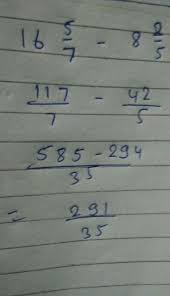 16 5/7 - 8 2/5
117/7 - 42/5
585 - 294/35
= 291/35